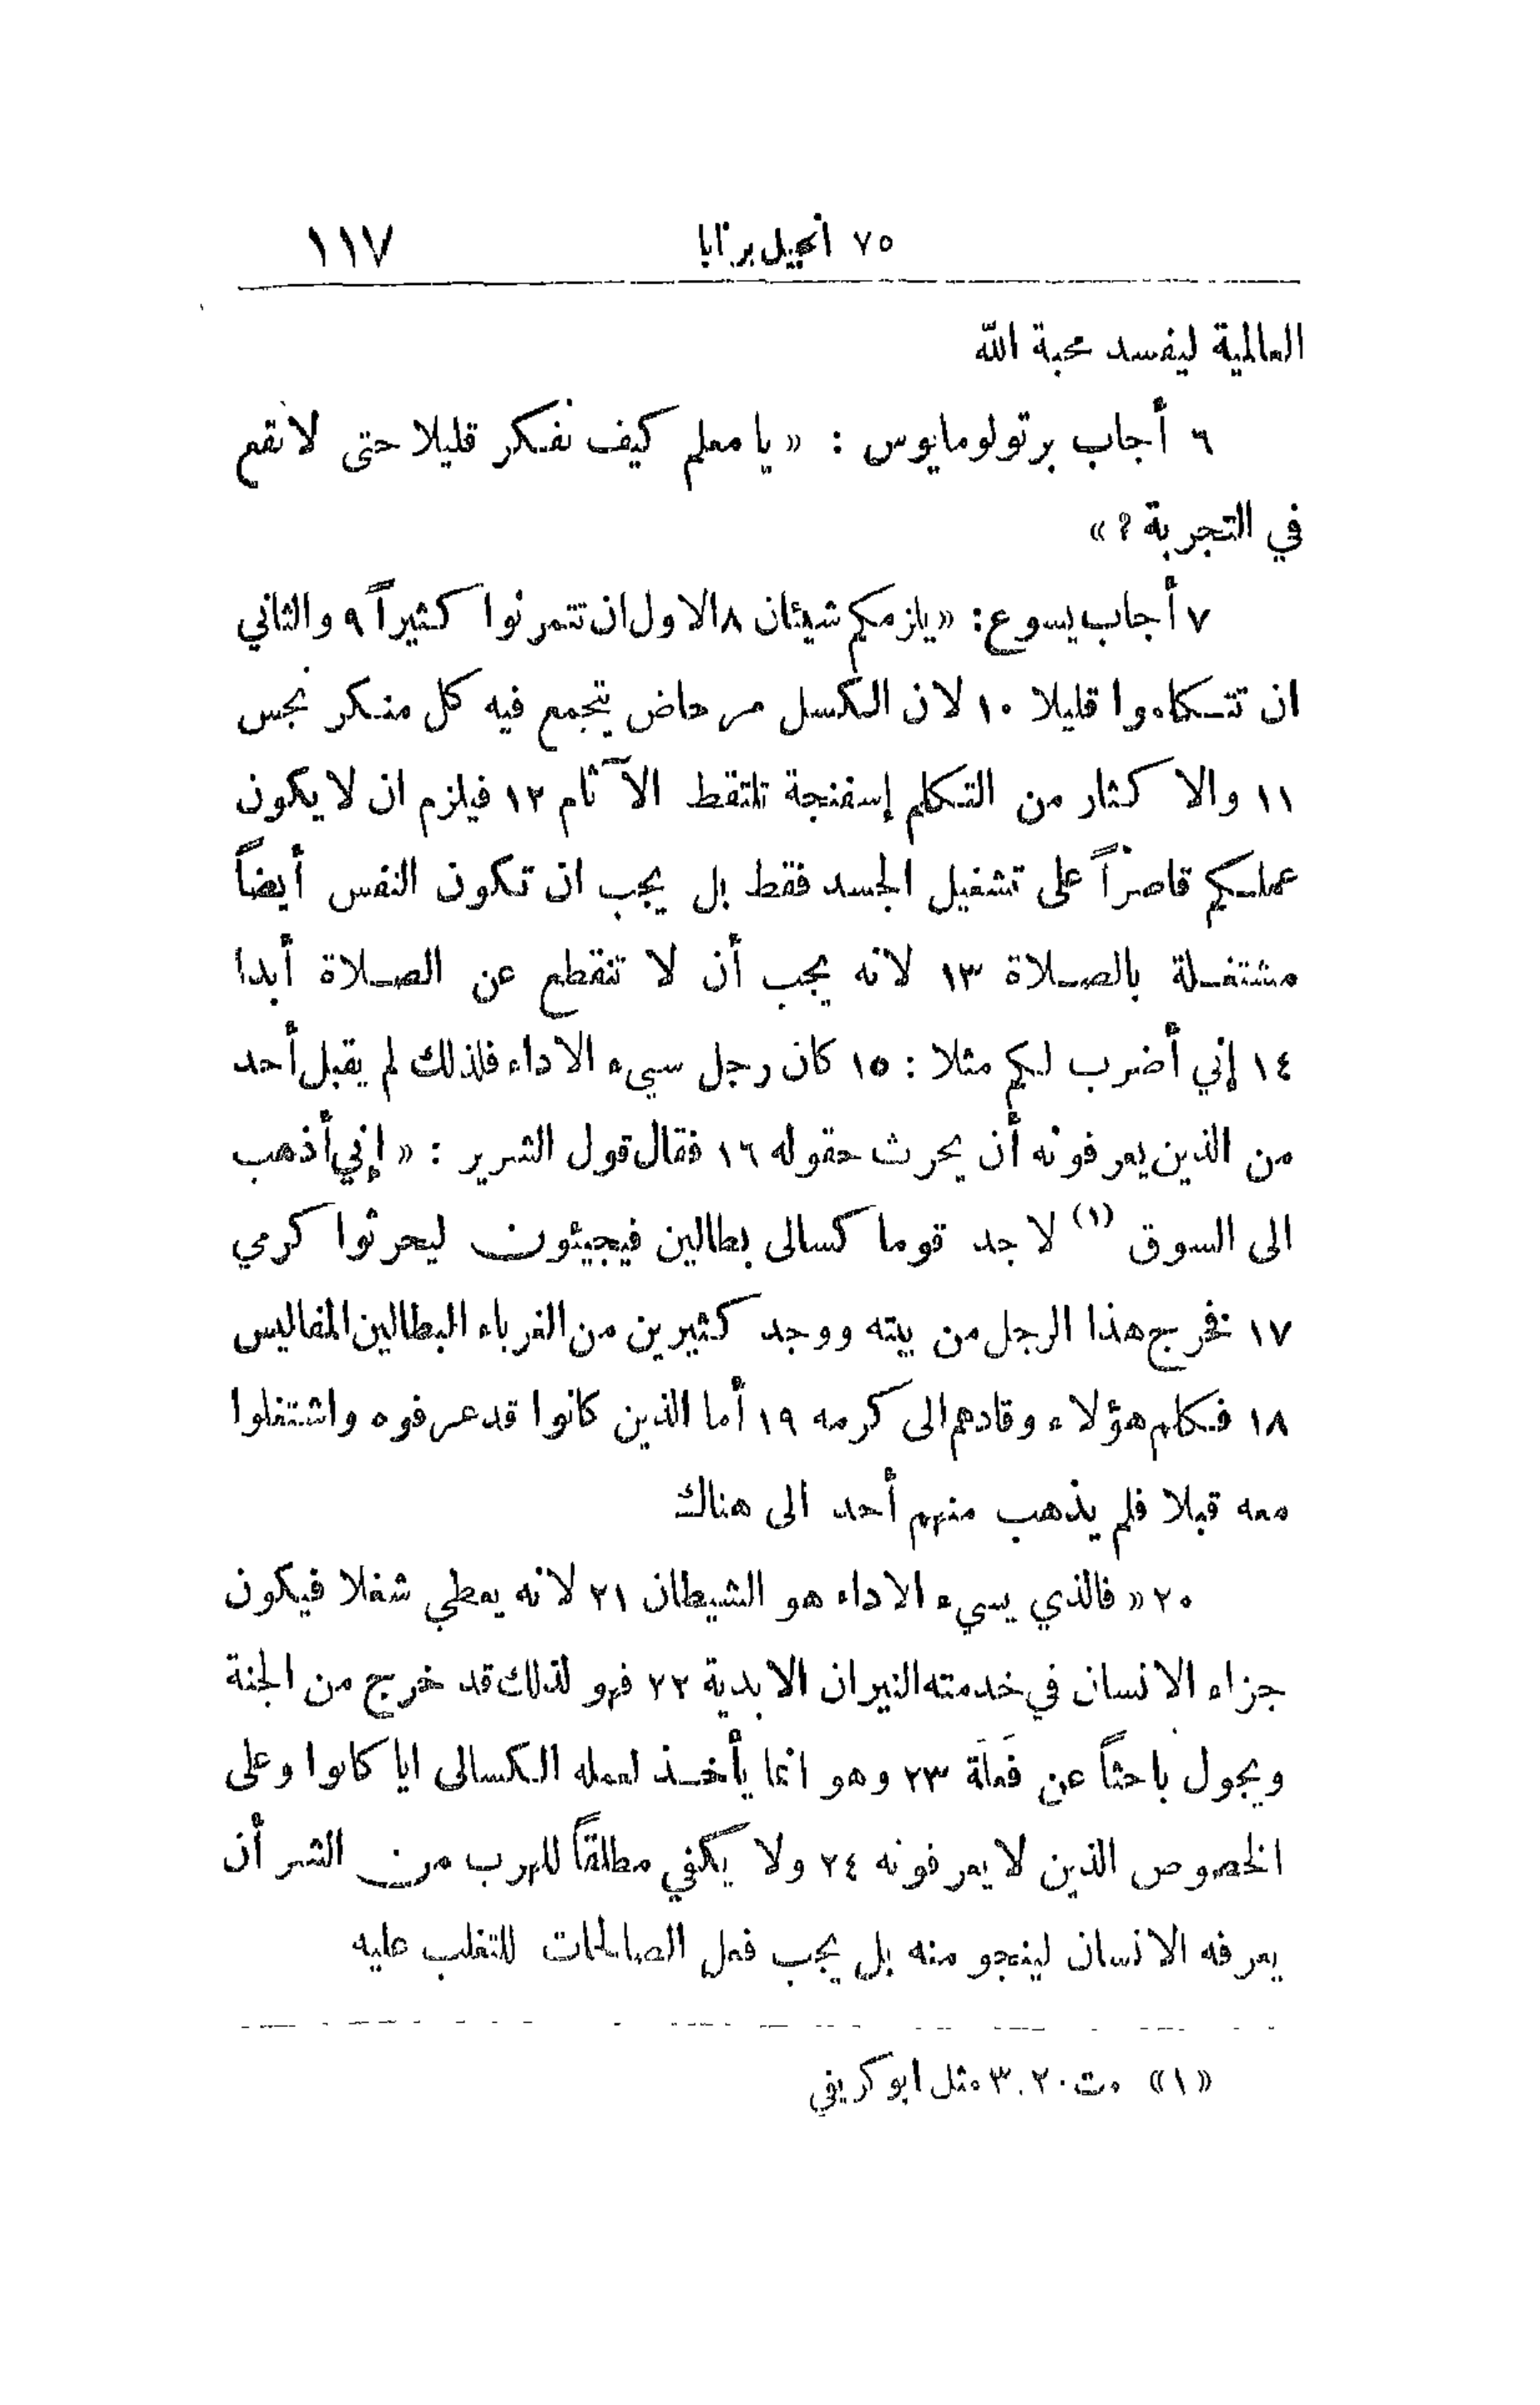 ٧٥ أنجيل برنابا ١١٧
العالمية ليفسد محبة الله
٦ أجاب برتولومايوس : « يا معلم كيف نفكر قليلا حتى لا نقع
في التجربة ؟ »
٧ أجاب يسوع : « يلزمكم شيئان ٨ الاول ان تتمرنوا كثيراً ٩ والثاني
ان تتكلموا قليلا ١٠ لان الكسل مرحاض يتجمع فيه كل منكر نجس
١١ والاكثار من التكلم إسفنجة تلتقط الآثام ١٢ فيلزم ان لا يكون
عملكم قاصراً على تشغيل الجسد فقط بل يجب ان تكون النفس أيضاً
مشتغلة بالصلاة ١٣ لانه يجب أن لا تنقطع عن الصلاة أبدا
١٤ إني أضرب لكم مثلا : ١٥ كان رجل سيء الاداء فلذلك لم يقبل أحد
من الذين يعرفونه أن يحرث حقوله ١٦ فقال قول الشرير : « إني أذهب
الى السوق (١) لاجد قوما كسالى بطالين فيجيئون ليحرثوا كرمي
١٧ فخرج هذا الرجل من بيته ووجد كثيرين من الغرباء البطالين المفاليس
١٨ فكلم هؤلاء وقادهم الى كرمه ١٩ أما الذين كانوا قد عرفوه واشتغلوا
معه قبلا فلم يذهب منهم أحد الى هناك
٢٠ « فالذي يسيء الاداء هو الشيطان ٢١ لانه يعطي شغلا فيكون
جزاء الانسان في خدمته النيران الابدية ٢٢ فهو لذلك قد خرج من الجنة
ويجول باحثاً عن فَعَلَة ٢٣ وهو انما يأخذ لعمله الكسالى ايا كانوا وعلى
الخصوص الذين لا يعرفونه ٢٤ ولا يكفي مطلقاً للهرب من الشر أن
يعرفه الانسان لينجو منه بل يجب فعل الصالحات للتغلب عليه
«١» مت ٢٠ . ٣ مثل ابوكريفي